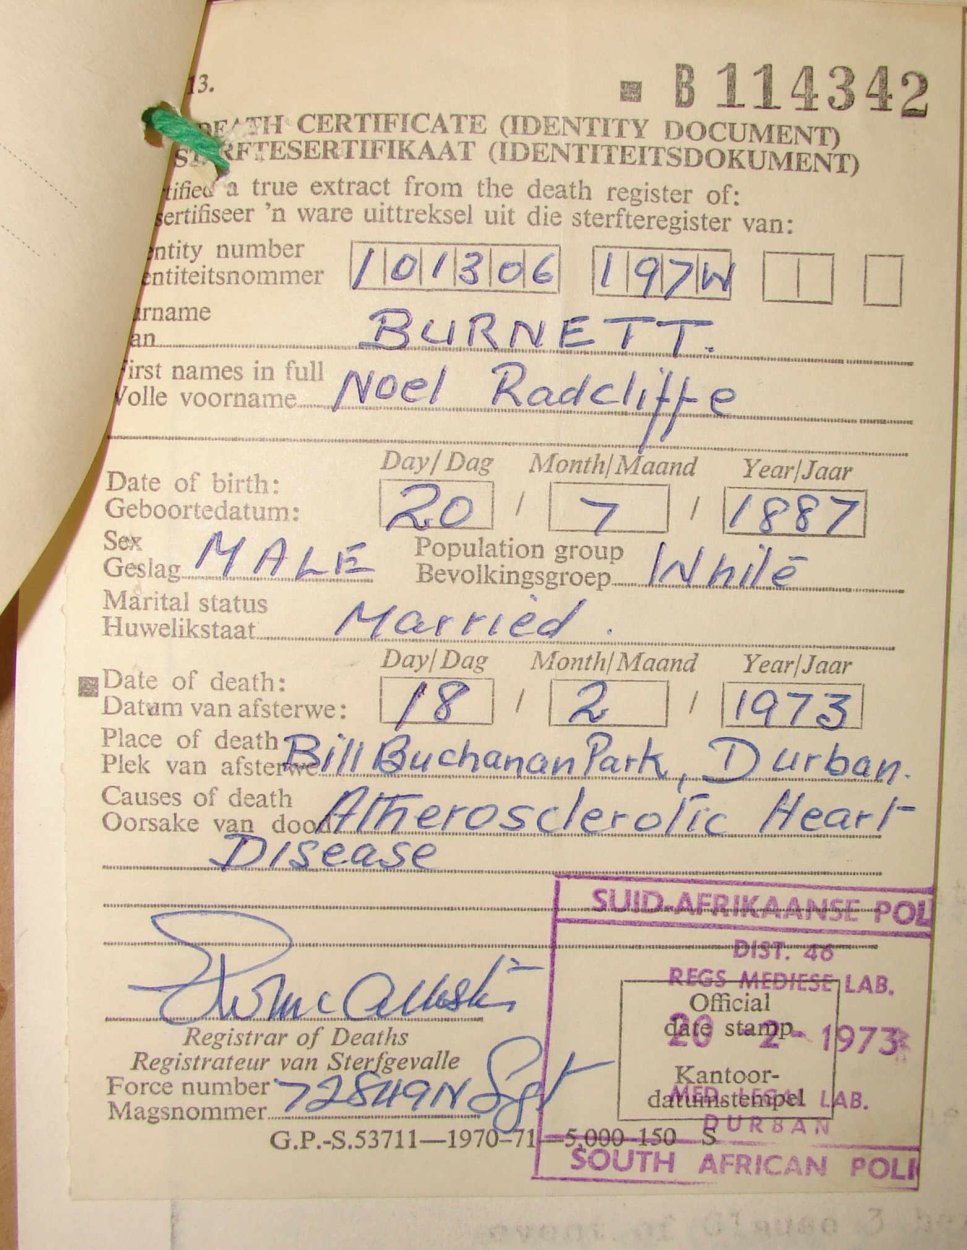 13.
B 114342
DEATH CERTIFICATE (IDENTITY DOCUMENT)
STERFTESERTIFIKAAT (IDENTITEITSDOKUMENT)
tified a true extract from the death register of:
sertifiseer 'n ware uittreksel uit die sterfteregister van:
entity number
entiteitsnommer 101306 197W
urname
an BURNETT.
First names in full
Volle voorname Noel Radcliffe
Day/Dag Month/Maand Year/Jaar
Date of birth:
Geboortedatum: 20 / 7 / 1887
Sex
Geslag MALE
Population group
Bevolkingsgroep White
Marital status
Huwelikstaat Married.
Day/Dag Month/Maand Year/Jaar
Date of death:
Datum van afsterwe: 18 / 2 / 1973
Place of death
Plek van afsterwe Bill Buchanan Park, Durban.
Causes of death
Oorsake van dood Atherosclerotic Heart
Disease
SUID-AFRIKAANSE POL
DIST. 46
REGS MEDIESE LAB.
Official
date stamp
20 -2- 1973
Kantoor-
datumstempel
MED. LEGAL LAB.
DURBAN
SOUTH AFRICAN POLI
Registrar of Deaths
Registrateur van Sterfgevalle
Force number
Magsnommer 72849N Sgt
G.P.-S.53711—1970-71—5,000-150 S
event of Clause 3 he